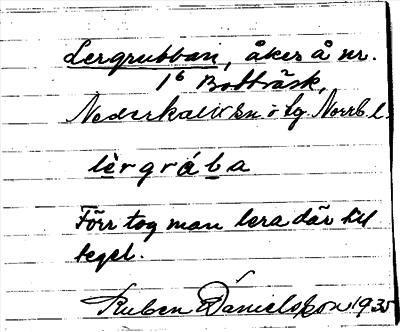 Lergrubban, åker å nr.
1⁶ Bodträsk,
Nederkalix sn. o. tg. Norrb. l.
lèrgrába
Förr tog man lera där till
tegel.
Ruben Danielsson 1935